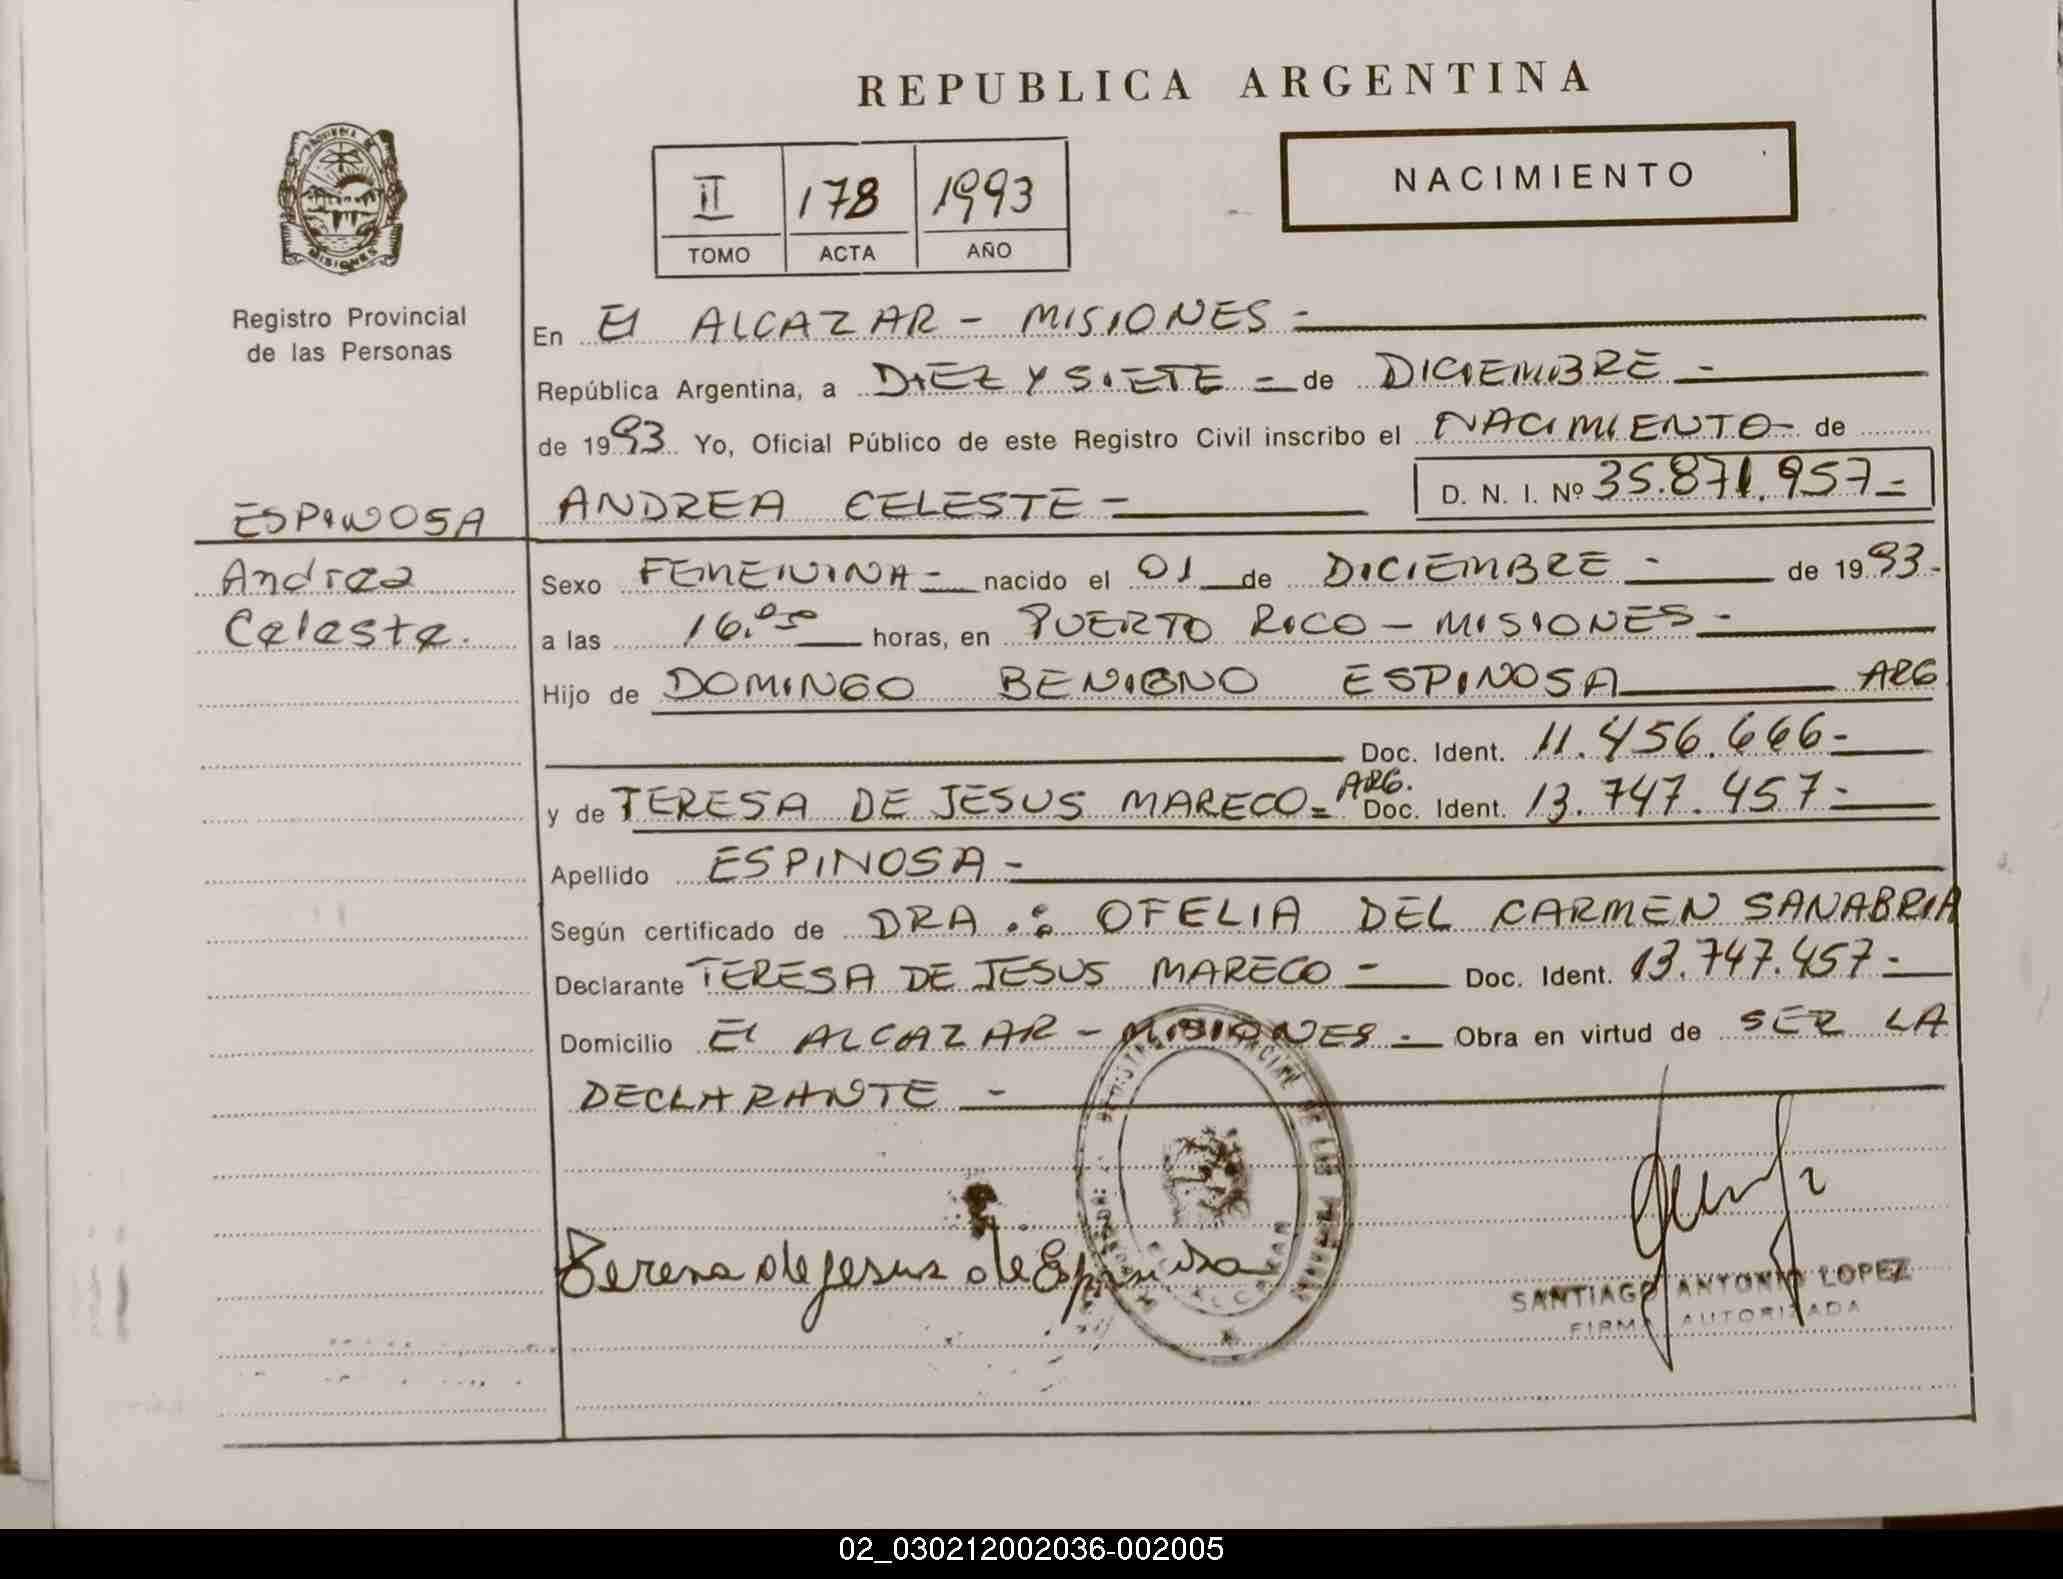 REPUBLICA ARGENTINA
NACIMIENTO
II 178 1993
TOMO ACTA AÑO
MISIONES
Registro Provincial
de las Personas
En El ALCAZAR - MISIONES -
República Argentina, a DIEZ Y SIETE - de DICIEMBRE -
de 1993 Yo, Oficial Público de este Registro Civil inscribo el NACIMIENTO - de
D. N. I. Nº 35.871.957 -
ESPINOSA ANDREA CELESTE -
Andrea
Celeste.
Sexo FEMENINA - nacido el 01 de DICIEMBRE - de 1993 -
a las 16.05 horas, en PUERTO RICO - MISIONES -
Hijo de DOMINGO BENIGNO ESPINOSA ARG
Doc. Ident. 11.456.666 -
y de TERESA DE JESUS MARECO - ARG. Doc. Ident. 13.747.457 -
Apellido ESPINOSA -
Según certificado de DRA.: OFELIA DEL CARMEN SANABRIA
Declarante TERESA DE JESUS MARECO - Doc. Ident. 13.747.457 -
Domicilio El ALCAZAR - MISIONES - Obra en virtud de SER LA
DECLARANTE -
Teresa de Jesus de Espinosa
SANTIAGO ANTONIO LOPEZ
FIRMA AUTORIZADA
02_030212002036-002005